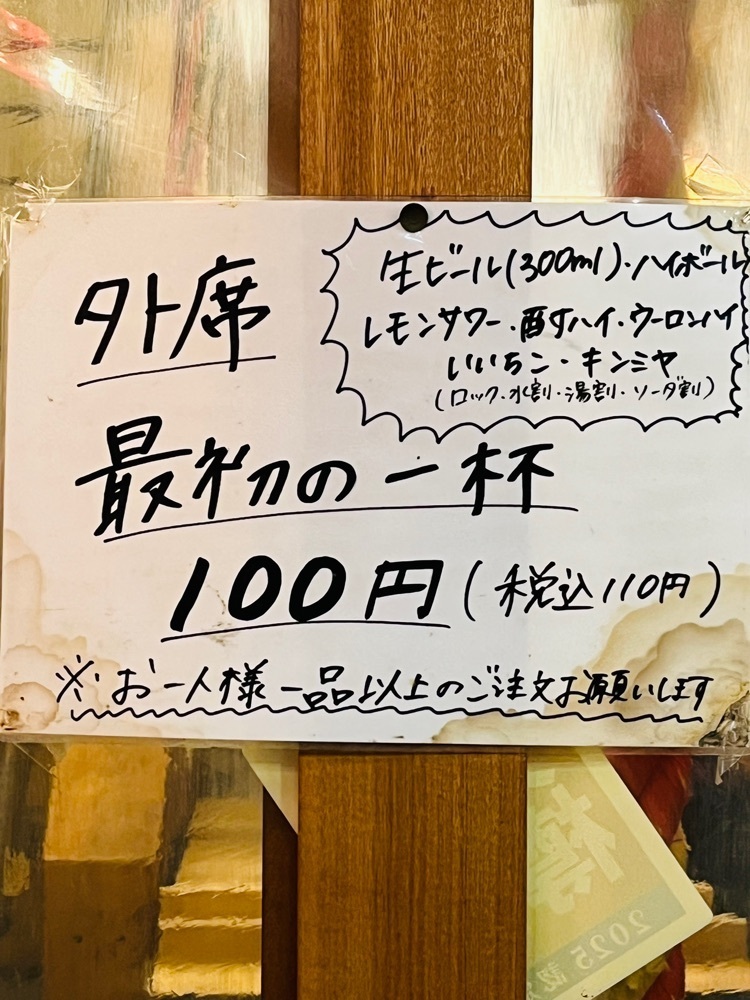 外席
生ビール(300ml)・ハイボール
レモンサワー・酎ハイ・ウーロンハイ
いいちこ・キンミヤ
(ロック・水割・湯割・ソーダ割)
最初の一杯
100円(税込110円)
※お一人様一品以上のご注文お願いします
2025